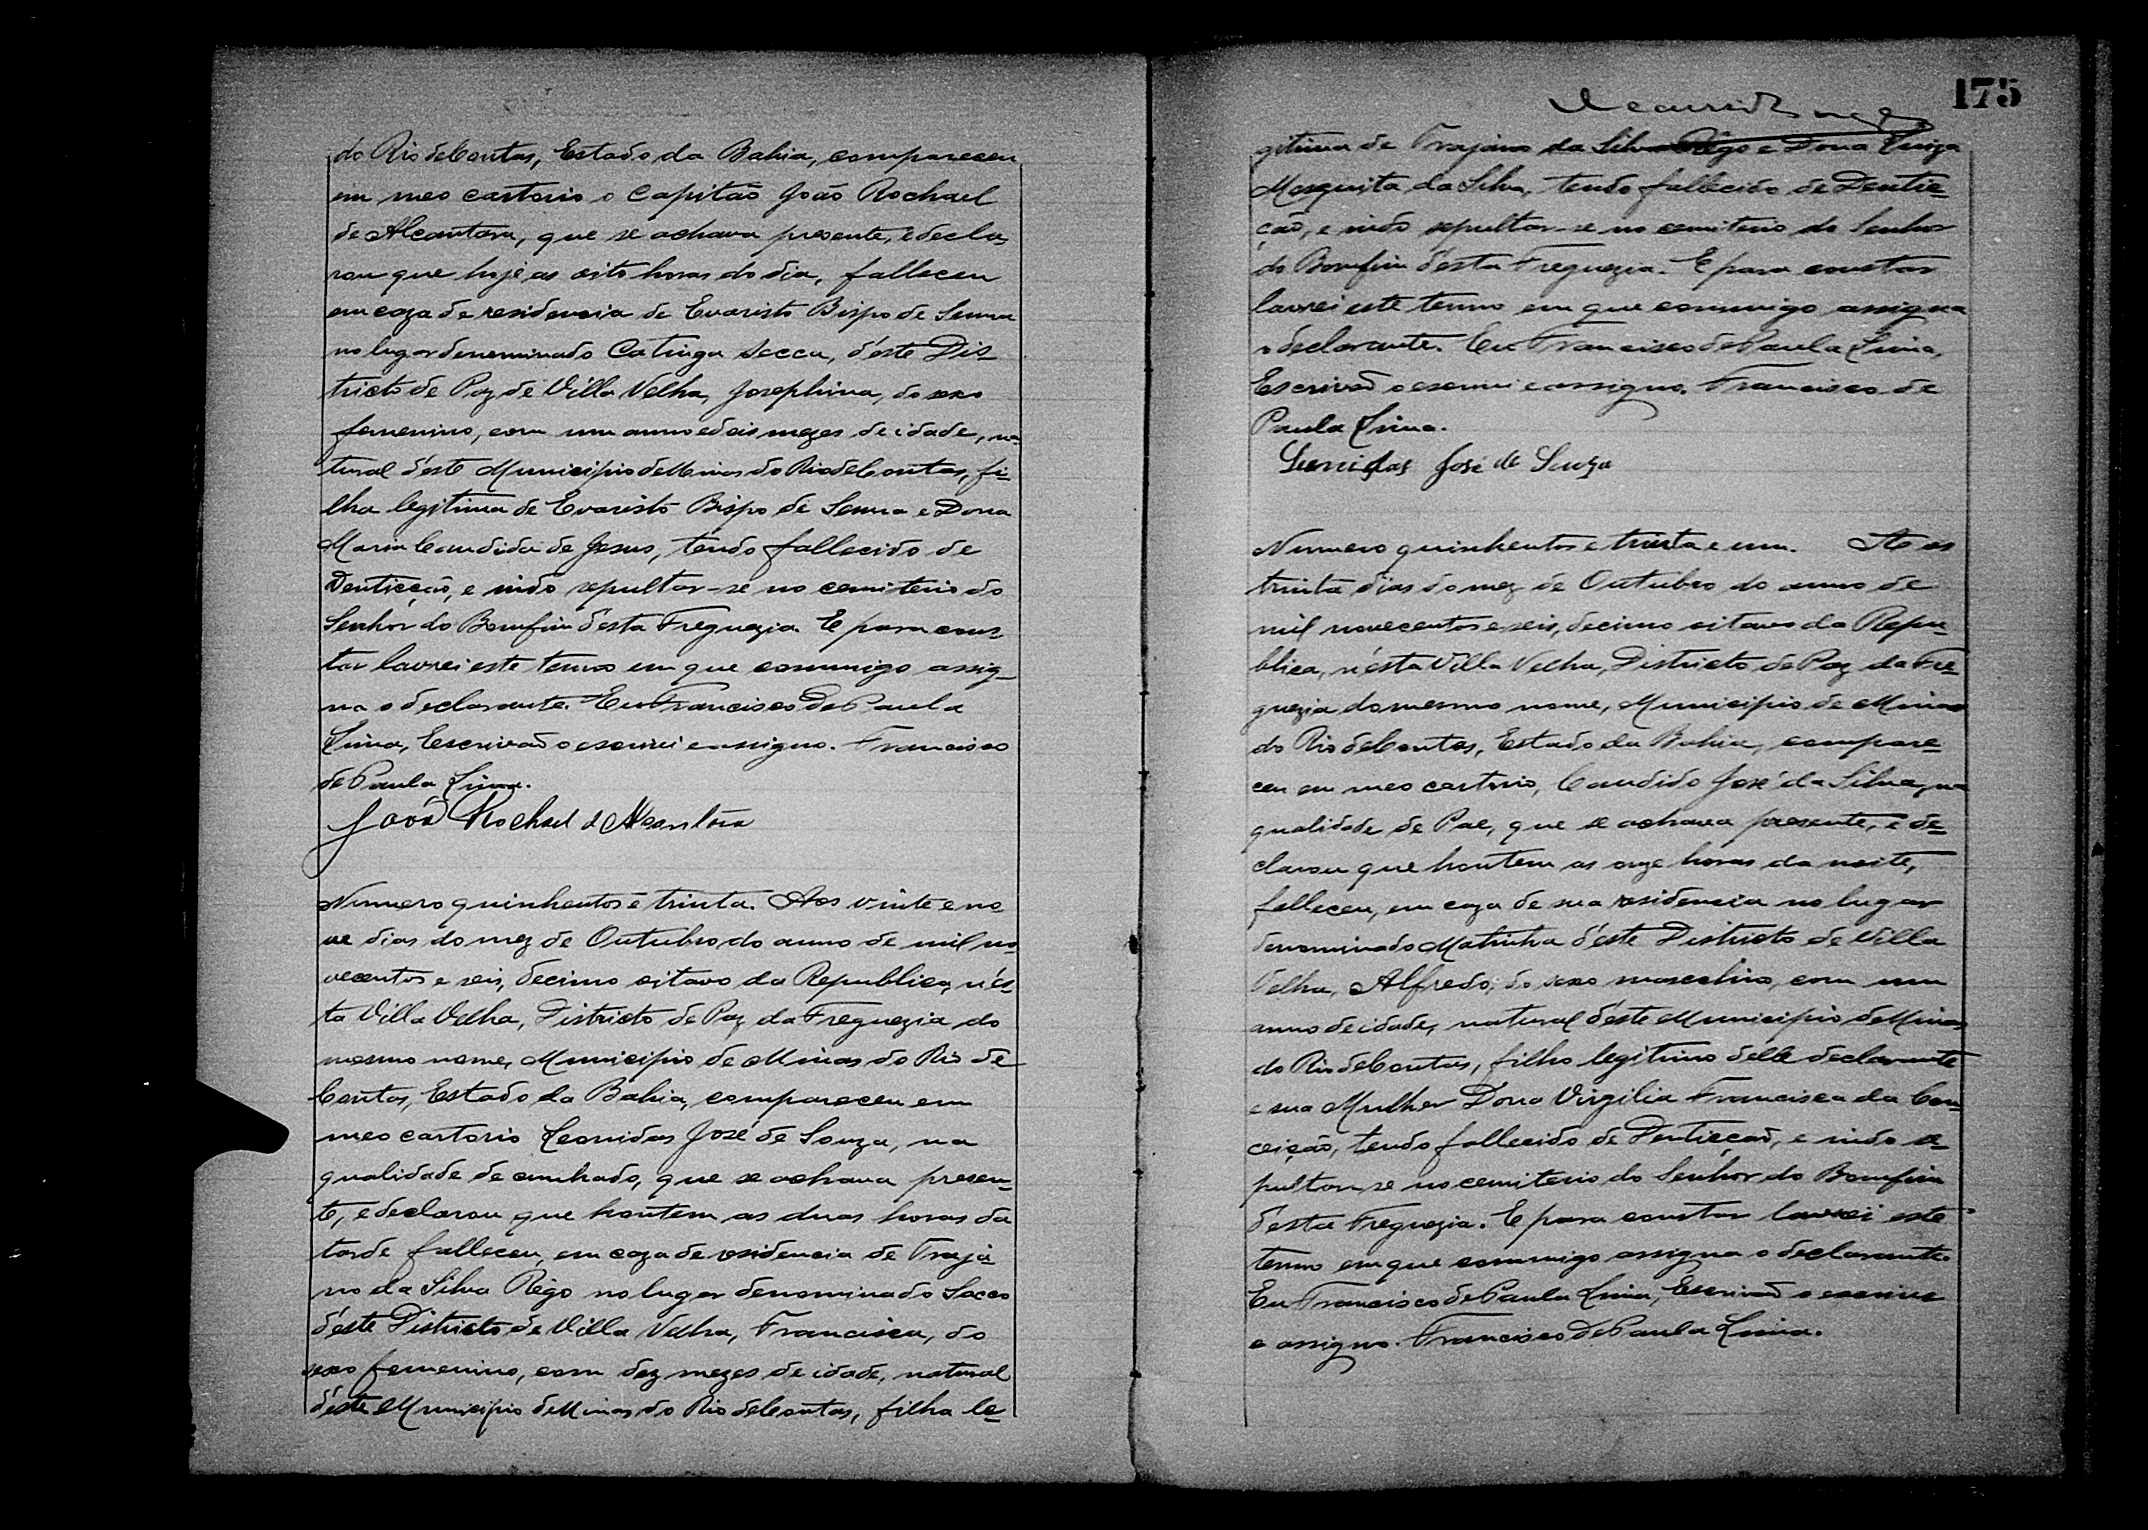 do Rio de Contas, Estado da Bahia, compareceu
em meo cartorio o Capitão João Rochael
de Alcantara, que se achava presente, e decla-
rou que hoje as oito horas do dia, falleceu
em caza de residencia de Evaristo Bispo de Senna
no lugar denominado Catinga Secca, d'este Dis-
tricto de Paz de Villa Velha, Josephina, do sexo
femenino, com um anno e dois mezes de idade, na-
tural d'este Municipio de Minas do Rio de Contas, fi-
lha legitima de Evaristo Bispo de Senna e Dona
Maria Candida de Jesus, tendo fallecido de
Denticção, e indo sepultar-se no cemiterio do
Senhor do Bomfim d'esta Freguezia. E para cons-
tar lavrei este termo em que commigo assig-
na o declarante. Eu Francisco de Paula
Lima, Escrivão o escrevi e assigno. Francisco
de Paula Lima.
João Rochael d Alcantara
Numero quinhentos e trinta. Aos vinte e no-
ve dias do mez de Outubro do anno de mil no-
vecentos e seis, decimo oitavo da Republica, n'es-
ta Villa Velha, Districto de Paz da Freguezia do
mesmo nome, Municipio de Minas do Rio de
Contas, Estado da Bahia, compareceu em
meo cartorio Leonidas José de Souza, na
qualidade de cunhado, que se achava presen-
te, e declarou que hontem as duas horas da
tarde falleceu, em caza de residencia de Traja-
no da Silva Rêgo no lugar denominado Sacco
d'este Districto de Villa Velha, Francisca, do
sexo femenino, com dez mezes de idade, natural
d'este Municipio de Minas do Rio de Contas, filha le-
175
gitima de Trajano da Silva Rêgo e Dona
Mesquita da Silva, tendo fallecido de Dentic-
ção, e indo sepultar-se no cemiterio do Senhor
do Bomfim d'esta Freguezia. E para constar
lavrei este termo em que commigo assigna
o declarante. Eu Francisco de Paula Lima,
Escrivão o escrevi e assigno. Francisco de
Paula Lima.
Leonidas José de Souza
Numero quinhentos e trinta e um. Aos
trinta dias do mez de Outubro do anno de
mil novecentos e seis, decimo oitavo da Repu-
blica, n'esta Villa Velha, Districto de Paz da Fre-
guezia do mesmo nome, Municipio de Minas
do Rio de Contas, Estado da Bahia, compare-
ceu em meo cartorio, Candido José da Silva, na
qualidade de Pae, que se achava presente, e de-
clarou que hontem as onze horas da noite,
falleceu, em caza de sua residencia no lugar
denominado Matinha d'este Districto de Villa
Velha, Alfredo, do sexo masculino, com um
anno de idade, natural d'este Municipio de Minas
do Rio de Contas, filho legitimo delle declarante
e sua Mulher Dona Virgilia Francisca da Con-
ceição, tendo fallecido de Denticção, e indo se-
pultar-se no cemiterio do Senhor do Bomfim
d'esta Freguezia. E para constar lavrei este
termo em que commigo assigna o declarante.
Eu Francisco de Paula Lima, Escrivão o escrevi
e assigno. Francisco de Paula Lima.